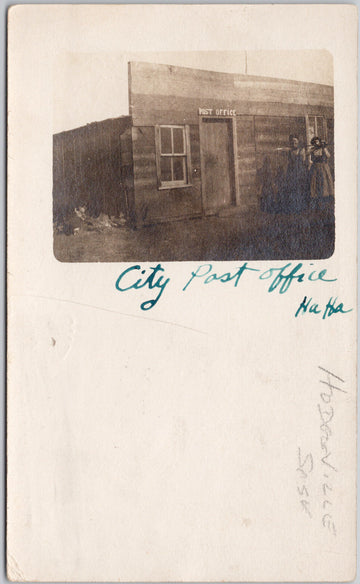 POST OFFICE
City Post office
Ha Ha
HODGEVILLE
SASK